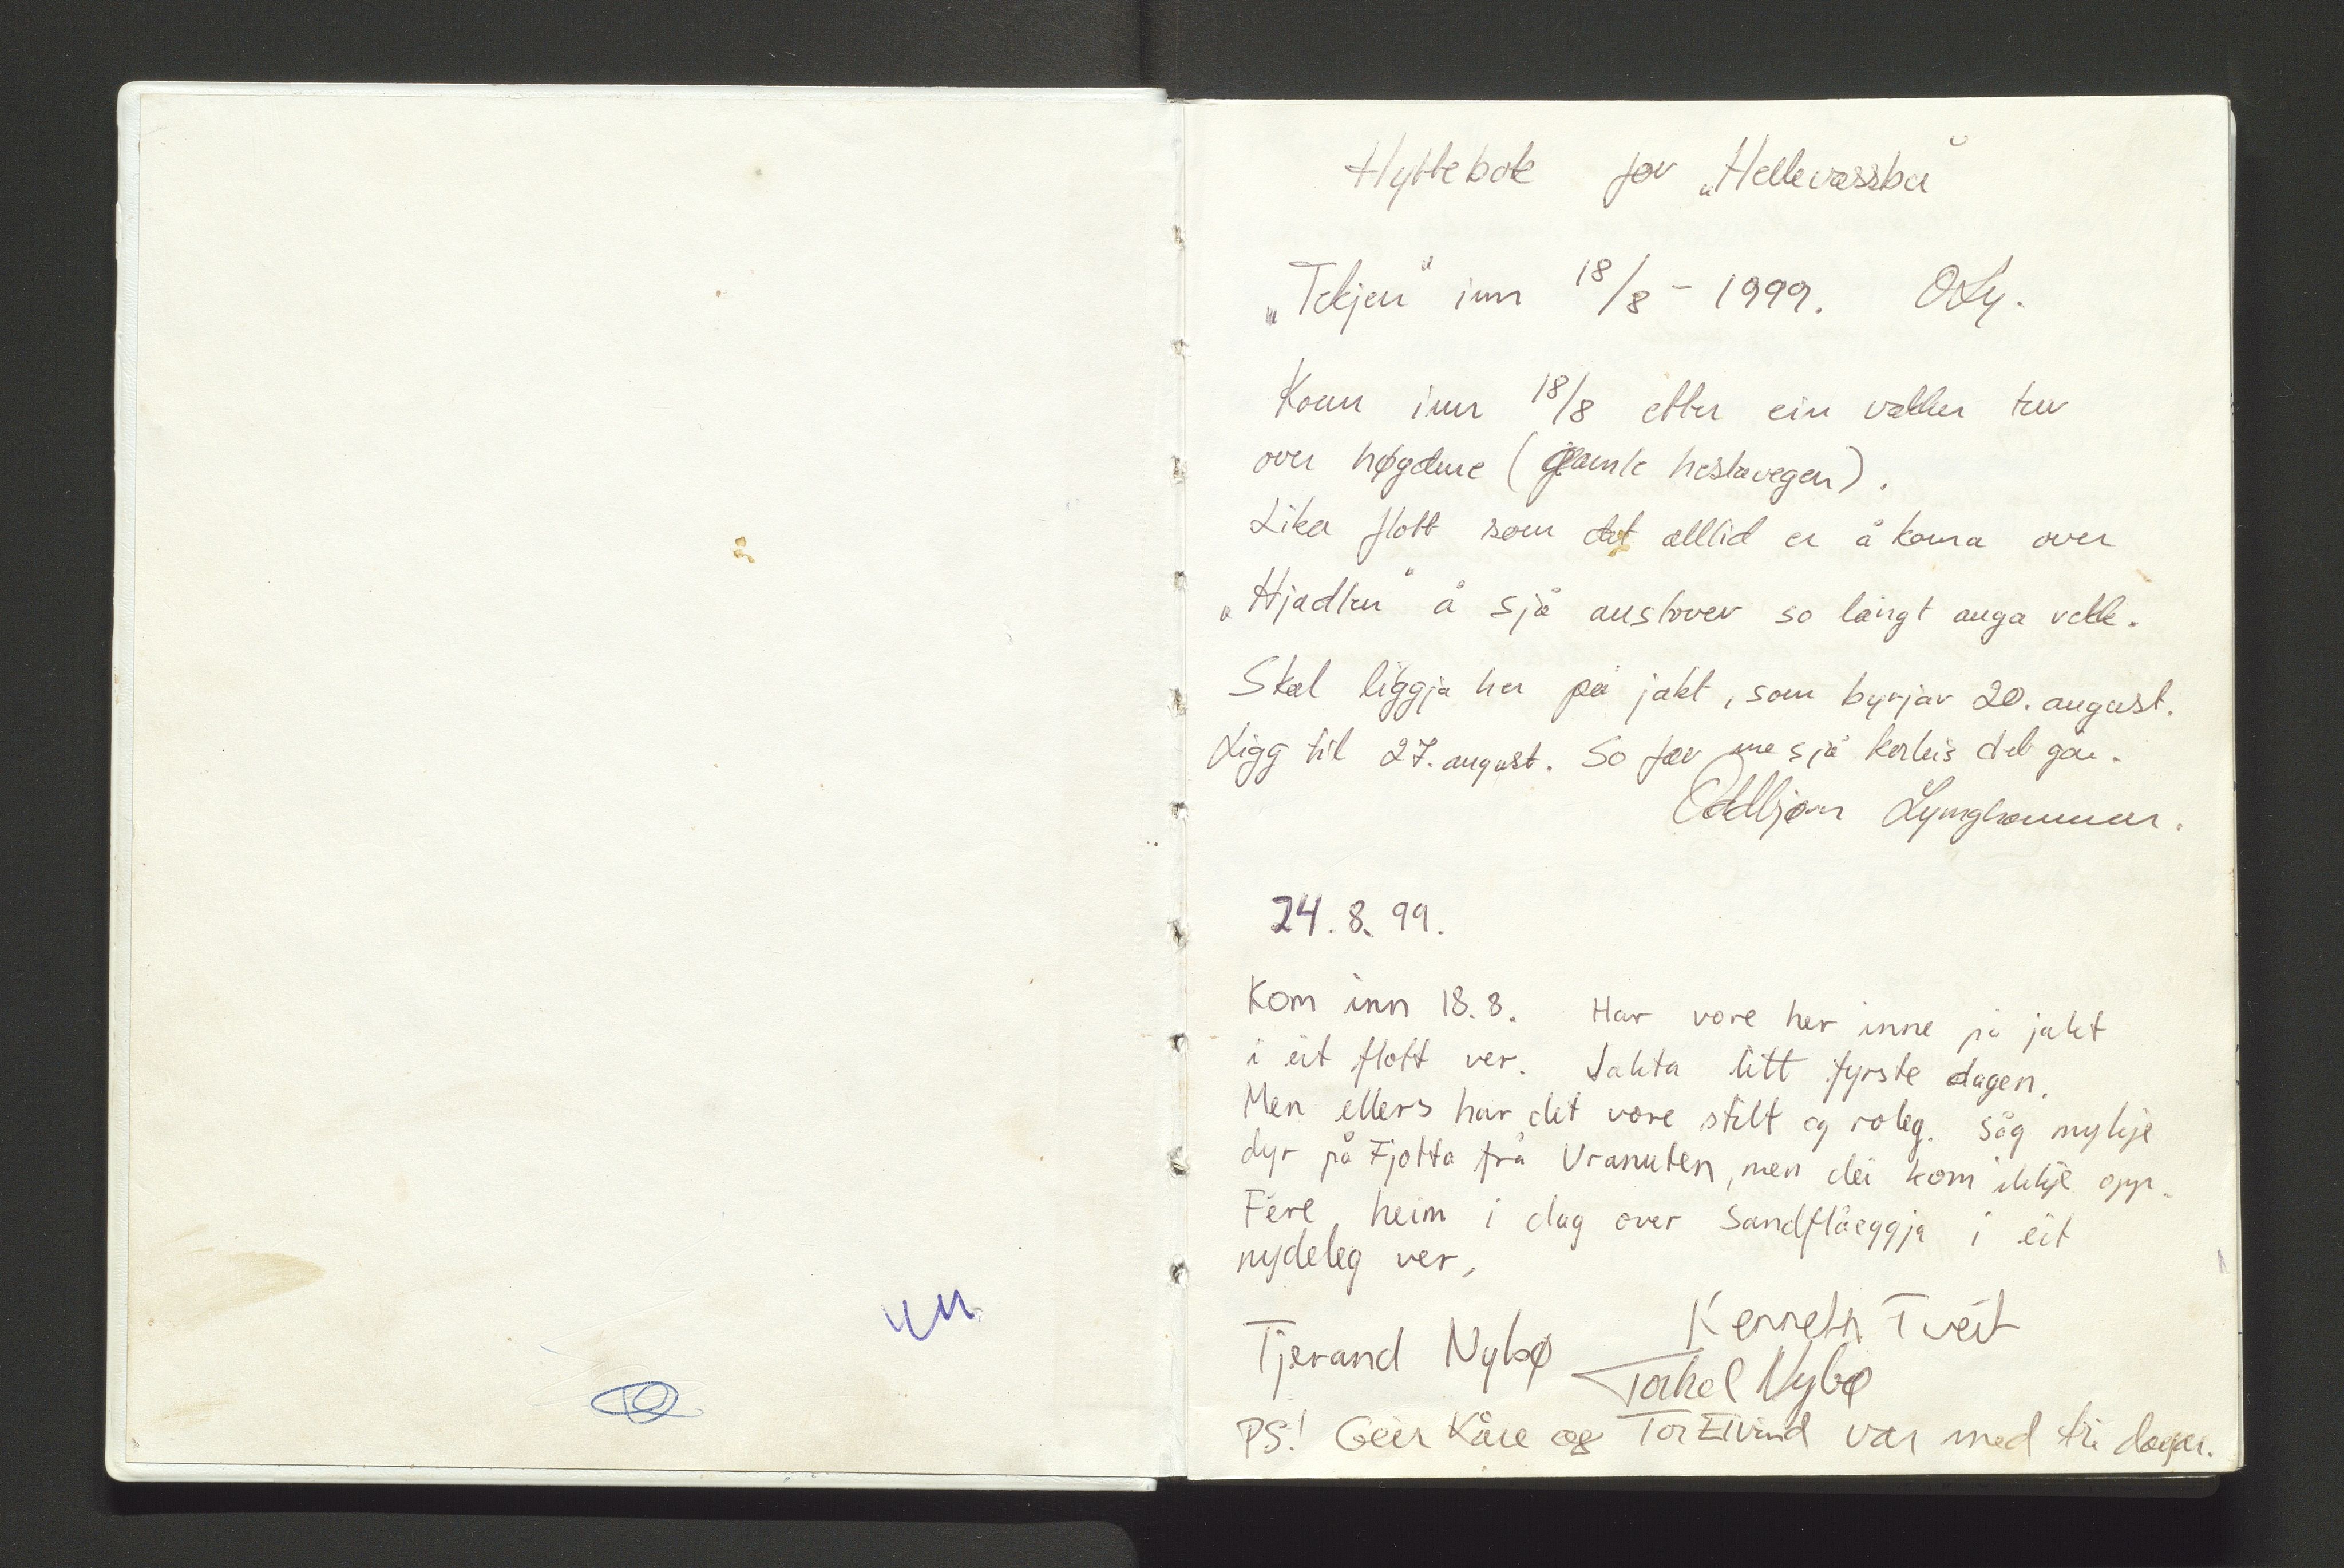 Hyttebok for „Hellevassbu"
„Tekjen" inn 18/8 - 1999. OLy.
Kom inn 18/8 etter ein vakker tur
over høgdene (gamle hestavegen).
Lika flott som det alltid er å koma over
„Hjadlen" å sjå austover so langt auga rekk.
Skal liggja her på jakt, som byrjar 20. august.
Ligg til 27. august. So får me sjå korleis det går.
Oddbjørn Lynghammar.
24.8.99.
Kom inn 18.8. Har vore her inne på jakt
i eit flott ver. Jakta litt fyrste dagen.
Men ellers har det vore stilt og roleg. Såg mykje
dyr på Fjotta frå Uranuten, men dei kom ikkje opp.
Fere heim i dag over Sandflåeggja i eit
nydeleg ver,
Kenneth Tveit
Tjerand Nybø
Torkel Nybø
PS! Geir Kåre og Tor Eivind var med tri dagar.